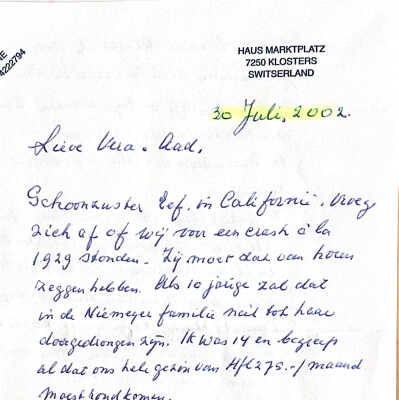 NE
4222794
HAUS MARKTPLATZ
7250 KLOSTERS
SWITSERLAND
30 Juli, 2002.
Lieve Vera - Aad,
Schoonzuster Eef, in Californië, vroeg
zich af of wij voor een crash à la
1929 stonden. Zij moet dat van horen
zeggen hebben. Als 10 jarige zal dat
in de Niemeyer familie niet tot haar
doorgedrongen zijn. Ik was 14 en begreep
al dat ons hele gezin van Hfl 275.-/maand
moest rondkomen.